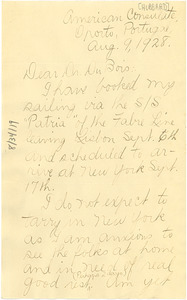 (CALBERAULT)
American Consulate,
Oporto, Portugal,
Aug. 9, 1928.
Dear Dr. Du Bois:
I have booked my
sailing via the S/S
"Patria" of the Fabre Line
leaving Lisbon Sept. 6th
and scheduled to ar-
rive at New York Sept.
17th.
I do not expect to
tarry in New York
as I am anxious to
see the folks at home
and in need of real
good rest. Am yet